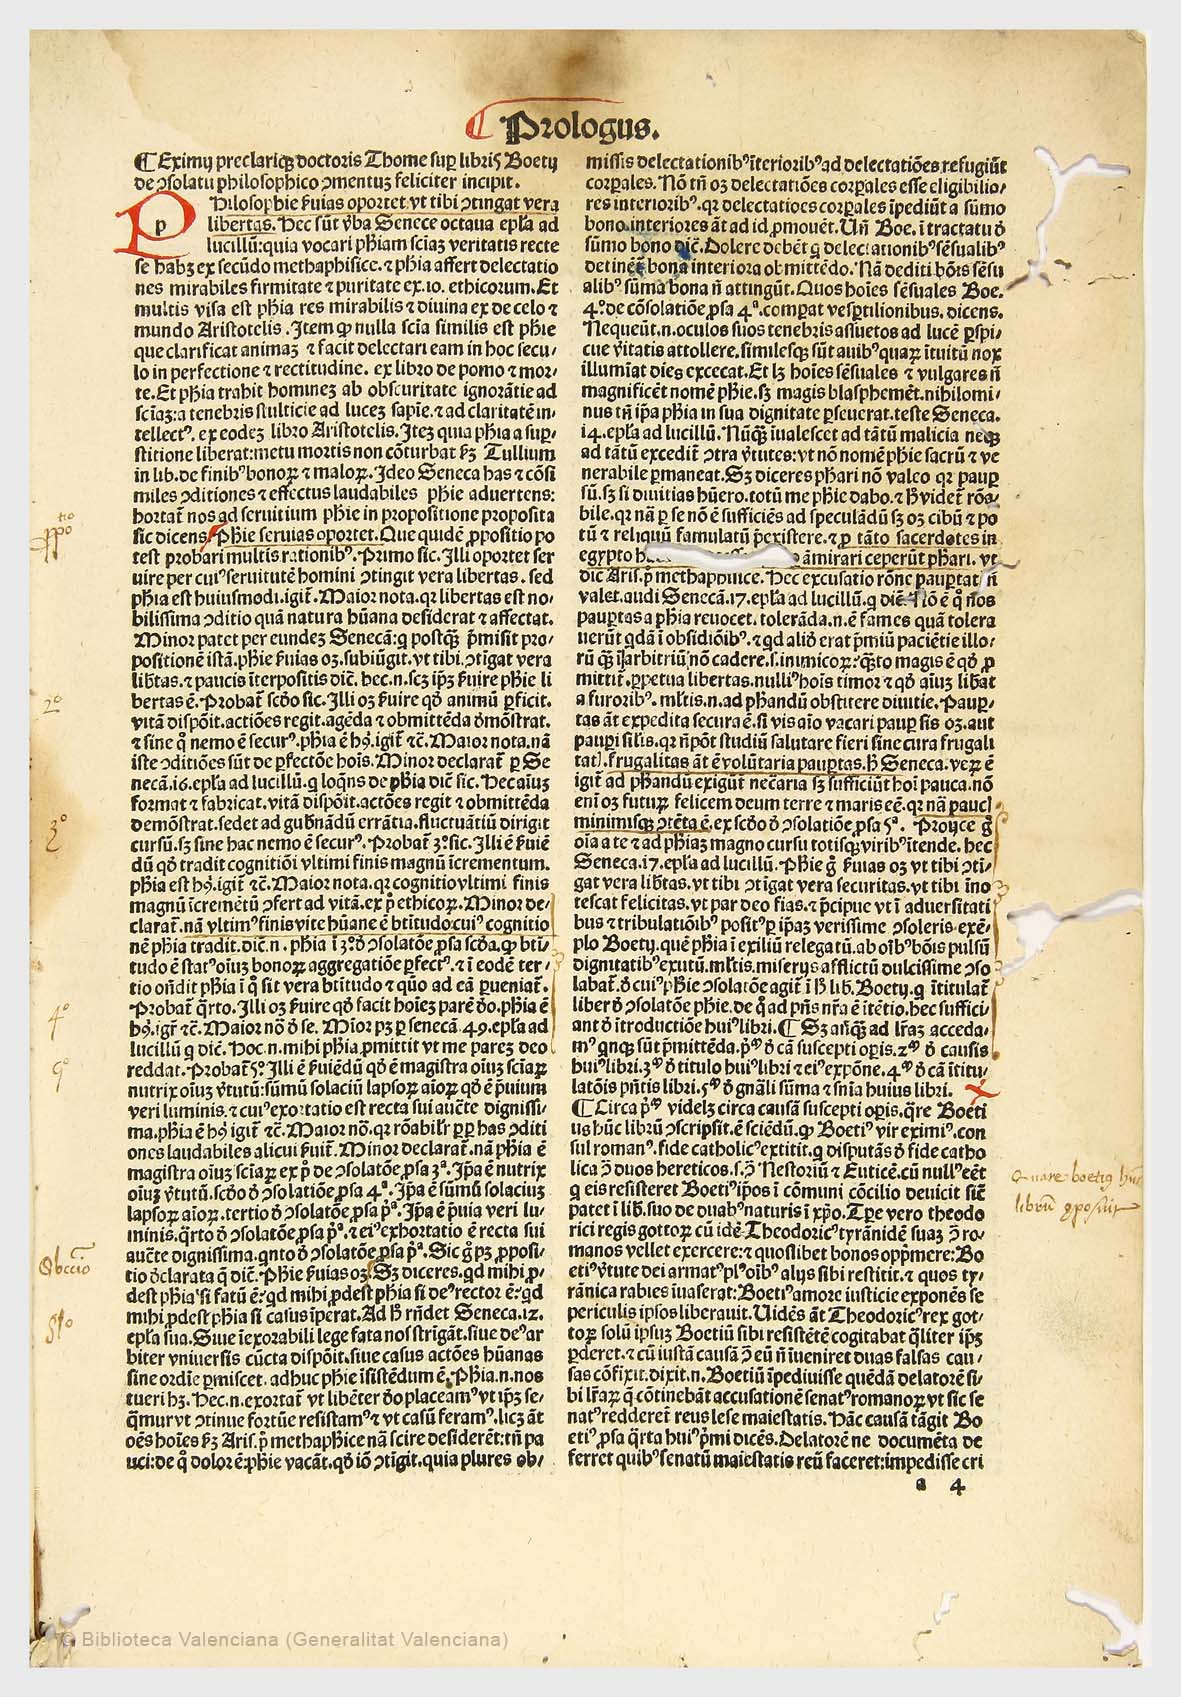 Prologus.
¶ Eximij preclariqꝫ doctoris Thome suꝑ libris Boetij
de ꝯsolatu philosophico ꝯmentuꝫ feliciter incipit.
PHilosophie ẜuias oportet vt tibi ꝯtingat vera
libertas. Hec sūt v̓ba Senece octaua epl̄a ad
lucillū: quia vocari ph̄iam sciaꝫ veritatis recte
se habꝫ ex secūdo methaphisice. ⁊ ph̄ia affert delectatio
nes mirabiles firmitate ⁊ puritate ex .10. ethicorum. Et
multis visa est ph̄ia res mirabilis ⁊ diuina ex de celo ⁊
mundo Aristotelis . Item ꝙ nulla scīa similis est ph̄ie
que clarificat animaꝫ ⁊ facit delectari eam in hoc secu-
lo in perfectione ⁊ rectitudine. ex libro de pomo ⁊ mor-
te. Et ph̄ia trahit hominez ab obscuritate ignorātie ad
scīaꝫ: a tenebris stulticie ad lucez sapīe. ⁊ ad claritatē in-
tellectꝰ. ex eodez libro Aristotelis. Itez quia ph̄ia a suꝑ-
stitione liberat: metu mortis non cōturbat ẜꝫ Tullium
in lib. de finibꝰ bonoꝝ ⁊ maloꝝ. Ideo Seneca has ⁊ cōsi
miles ꝯditiones ⁊ effectus laudabiles ph̄ie aduertens:
hortat̄ nos ad seruitium ph̄ie in propositione proposita
sic dicens. Ph̄ie seruias oportet. Que quidē ꝓpositio po
test probari multis rationibꝰ. Primo sic. Illi oportet ser
uire per cuiꝰ seruitutē homini ꝯtingit vera libertas. sed
ph̄ia est huiusmodi. igit̄. Maior nota. qꝛ libertas est no-
bilissima ꝯditio quā natura hūana desiderat ⁊ affectat.
Minor patet per eundez Senecā: q postq̄ꝫ p̄misit pro-
positionē istā. ph̄ie ẜuias oꝫ. subiūgit. vt tibi. ꝯtīgat vera
lib̄tas. ⁊ paucis īterpositis dic̄. hec .n. scꝫ ip̄ꝫ ẜuire ph̄ie li
bertas ē. Probat̄ scd̄o sic. Illi oꝫ ẜuire qd̄ animū ꝑficit.
vitā dispōit. actiōes regit. agēda ⁊ obmittēda d̄mōstrat.
⁊ sine q̄ nemo ē securꝰ. ph̄ia ē hꝰ. igit̄ ⁊c̄. Maior nota. nā
iste ꝯditiōes sūt de ꝑfectōe hoīs. Minor declarat̄ ꝑ Se
necā .16. epl̄a ad lucillū. q loqn̄s de ph̄ia dic̄ sic. Hec aīuꝫ
format ⁊ fabricat. vitā dispōit. actōes regit ⁊ obmittēda
demōstrat. sedet ad gub̄nādū errātia. fluctuātiū dirigit
cursū. sꝫ sine hac nemo ē securꝰ. Probat̄ 3ꝰ. sic. Illi ē ẜuiē
dū qd̄ tradit cognitiōi vltimi finis magnū īcrementum.
ph̄ia est hꝰ. igit̄ ⁊c̄. Maior nota. qꝛ cognitio vltimi finis
magnū īcremētū ꝯfert ad vitā. ex p̄ ethicoꝝ. Minor de-
clarat̄. nā vltimꝰ finis vite hūane ē btītudo: cuiꝰ cognitio
nē ph̄ia tradit. dic̄ .n. ph̄ia ī 3ꝰ d̄ ꝯsolatōe ꝓsa scd̄a. ꝙ btī-
tudo ē statꝰ oīuꝫ bonoꝝ aggregatiōe ꝑfectꝰ. ⁊ ī eodē ter-
tio on̄dit ph̄ia ī q̊ sit vera btitudo ⁊ quō ad eā ꝑueniat̄.
Probat̄ q̄rto. Illi oꝫ ẜuire qd̄ facit hoīez parē deo. ph̄ia ē
hꝰ. igr̄ ⁊c̄. Maior nō d̄ se. Mīor pꝫ ꝑ senecā .49. epl̄a ad
lucillū q dic̄. Hoc .n. mihi ph̄ia ꝓmittit vt me parez deo
reddat. Probat̄ 5ꝰ. Illi ē ẜuiēdū qd̄ ē magistra oīuꝫ sciaꝝ
nutrix oīuꝫ v̓tutū: sūmū solaciū lapsoꝝ aīoꝝ qd̄ ē p̄uium
veri luminis. ⁊ cuiꝰ exortatio est recta sui auc̄te dignissi-
ma. ph̄ia ē hꝰ igit̄ ⁊c̄. Maior nō. qꝛ rōabil̄r ꝓpꝑ has ꝯditi
ones laudabiles alicui ẜuit̄. Minor declarat̄. nā ph̄ia ē
magistra oīuꝫ sciaꝝ ex p̄ de ꝯsolatōe ꝓsa 3ᵃ. Ip̄a ē nutrix
oīuꝫ v̓tutū. scd̄o d̄ ꝯsolatiōe ꝓsa 4ᵃ. Ip̄a ē sūmū solaciuꝫ
lapsoꝝ aīoꝝ. tertio d̄ ꝯsolatōe ꝓsa p̄ᵃ. Ip̄a ē p̄uia veri lu-
minis. q̄rto d̄ ꝯsolatiōe ꝓsa p̄ᵃ. ⁊ eiꝰ exhortatio ē recta sui
auc̄te dignissima. qnto d̄ ꝯsolatōe ꝓsa p̄ᵃ. Sic g̊ pꝫ ꝓposi-
tio d̄clarata q̄ dic̄. Ph̄ie ẜuias oꝫ. Sꝫ diceres. qd mihi ꝓ-
dest ph̄ia si fatū ē: qd mihi ꝓdest ph̄ia si deꝰ rector ē: qd
mihi ꝓdest ph̄ia si casus īperat. Ad h̄ rn̄det Seneca .12.
epl̄a sua. Siue īexorabili lege fata nos strīgāt. siue deꝰ ar
biter vniuersis cūcta dispōit. siue casus actōes hūanas
sine ordīe ꝑmiscet. adhuc ph̄ie īsistēdum ē. Ph̄ia .n. nos
tueri hꝫ. Hec .n. exortat̄ vt libēter deo placeamꝰ vt ip̄ꝫ se-
q̄mur vt ꝯtinue fortūe resistamꝰ ⁊ vt casū feramꝰ. licꝫ āt
oēs hoīes ẜꝫ Aris. p̄ methaph̄ice nā scire desiderēt: tn̄ pa
uci: de q̊ dolor ē: ph̄ie vacāt. qd̄ iō ꝯtīgit. quia plures ob-
missis delectationibꝰ īterioribꝰ ad delectatiōes refugiūt
corꝑales. Nō tn̄ oꝫ delectatiōes corꝑales esse eligibilio-
res interioribꝰ. qꝛ delectatiōes corꝑales īpediūt a sūmo
bono. interiores āt ad id ꝓmouēt. Un̄ Boe. ī tractatu d̄
sūmo bono dic̄. Dolere debēt q delectationibꝰ sēsualibꝰ
detinēt̄ bona interiora obmittēdo. Nā dediti bōis sēsu
alibꝰ sūma bona n̄ attingūt. Quos hoīes sēsuales Boe.
4ꝰ. de cōsolatiōe ꝓsa 4ᵃ. comꝑat vesꝑtilionibus. dicens.
Nequeūt .n. oculos suos tenebris assuetos ad lucē ꝑspi-
cue v̓itatis attollere. similesqꝫ sūt auibꝰ quaꝝ ītuitū nox
illumīat dies excecat. Et lꝫ hoīes sēsuales ⁊ vulgares n̄
magnificēt nomē ph̄ie. sꝫ magis blasphemēt. nihilomi-
nus tn̄ ip̄a ph̄ia in sua dignitate ꝑseuerat. teste Seneca.
14. epl̄a ad lucillū. Nūq̄ꝫ īualescet ad tātū malicia neqꝫ
ad tātū excedit̄ ꝯtra v̓tutes: vt nō nomē ph̄ie sacrū ⁊ ve
nerabile ꝑmaneat. Sꝫ diceres ph̄ari nō valeo qꝛ pauꝑ
sū. sꝫ si diuitias hūero. totū me ph̄ie dabo. ⁊ h̄ videt̄ rōa-
bile. qꝛ nā ꝑ se nō ē sufficiēs ad speculādū sꝫ oꝫ cibū ⁊ po
tū ⁊ reliquū famulatū p̄existere. ⁊ ꝓ tāto sacerdotes in
egypto āmirari ceperūt ph̄ari. vt
dic̄ Aris. p̄ methaphisice. Hec excusatio rōne pauꝑtat n̄
valet. audi Senecā .17. epl̄a ad lucillū. q dic̄. Nō ē qd̄ nos
pauꝑtas a ph̄ia reuocet. tolerāda .n. ē fames quā tolera
uerūt qdā ī obsidiōibꝰ. ⁊ qd aliō erat p̄miū paciētie illo-
rū q̄ꝫ ī arbitriū nō cadere. s. inimicoꝝ: q̄to magis ē qd̄ ꝓ
mittit̄. ꝑpetua libertas. nulliꝰ hoīs timor ⁊ qd̄ aīuꝫ lib̄at
a furoribꝰ. ml̄tis .n. ad ph̄andū obstitere diuitie. Pauꝑ-
tas āt expedita secura ē. si vis aīo vacari pauꝑ sis oꝫ. aut
pauꝑi sil̄is. qꝛ n̄ pōt studiū salutare fieri sine cura frugali
tat. frugalitas āt ē volūtaria pauꝑtas. h̄ Seneca. veꝝ ē
igit̄ ad ph̄andū exiguū nec̄aria sꝫ sufficiūt hoī pauca. nō
eni oꝫ futuꝝ felicem deum terre ⁊ maris eē. qꝛ nā pauc
minimisqꝫ ꝯtēta ē. ex scd̄o d̄ ꝯsolatiōe ꝓsa 5ᵃ. Proijce g̊
oīa a te ⁊ ad ph̄iaꝫ magno cursu totisqꝫ viribꝰ ītende. hec
Seneca .17. epl̄a ad lucillū. Ph̄ie g̊ ẜuias oꝫ vt tibi ꝯtī-
gat vera lib̄tas. vt tibi ꝯtīgat vera securitas. vt tibi īno
tescat felicitas. vt par deo fias. ⁊ p̄cipue vt ī aduersitati
bus ⁊ tribulatiōibꝰ positꝰ ꝑ ip̄aꝫ verissime ꝯsoleris. exē-
plo Boetij. quē ph̄ia ī exiliū relegatū. ab oībꝰ bōis pulsū
dignitatibꝰ exutū. ml̄tis. miserijs afflictū dulcissime ꝯso
labat̄. d̄ cuiꝰ ph̄ie ꝯsolatōe agit̄ ī h̄ lib. Boetij. q ītitulat̄
liber d̄ ꝯsolatōe ph̄ie. de q̊ ad pn̄s nr̄a ē ītētio. hec suffici
ant d̄ ītroductiōe huiꝰ libri. ¶ Sꝫ anteq̄ꝫ ad lr̄aꝫ acceda-
mꝰ qnqꝫ sūt p̄mittēda. p̄ᵐ d̄ cā suscepti oꝑis. 2ᵐ d̄ causis
huiꝰ libri. 3ᵐ d̄ titulo huiꝰ libri ⁊ eiꝰ expōne. 4ᵐ d̄ cā ītitu-
latōis pn̄tis libri. 5ᵐ d̄ gn̄ali sūma ⁊ sn̄ia huius libri.
¶ Circa p̄ᵐ videlꝫ circa causā suscepti oꝑis. q̄re Boeti
us hūc librū ꝯscripsit. ē sciēdū. ꝙ Boetiꝰ vir eximiꝰ. con
sul romanꝰ. fide catholicꝰ extitit. q disputās d̄ fide catho
lica ꝯ̄ duos hereticos. s. ꝯ̄ Nestoriū ⁊ Euticē. cū nullꝰ eēt
q eis resisteret Boetiꝰ ip̄os ī cōmuni cōcilio deuicit sic̄
patet ī lib. suo de duabꝰ naturis ī xp̄o. Tꝑe vero theodo
rici regis gottoꝝ cū idē Theodoricꝰ tyrānidē suaꝫ ꝯ̄ ro-
manos vellet exercere: ⁊ quoslibet bonos opp̄mere: Bo
etiꝰ v̓tute dei armatꝰ plꝰ oībꝰ alijs sibi restitit. ⁊ quos ty-
rānica rabies īuaserat: Boetiꝰ amore iusticie exponēs se
periculis ipsos liberauit. Uidēs āt Theodoricꝰ rex got-
toꝝ solū ipsuꝫ Boetiū sibi resistētē cogitabat q̄liter ip̄ꝫ
ꝑderet. ⁊ cū iustā causā ꝯ̄ eū n̄ īueniret duas falsas cau-
sas cōfixit. dixit .n. Boetiū īpediuisse quēdā delatorē si-
bi lr̄aꝝ q̄ cōtinebāt accusationē senatꝰ romanoꝝ vt sic se
natꝰ redderet̄ reus lese maiestatis. Hāc causā tāgit Bo
etiꝰ ꝓsa q̄rta huiꝰ p̄mi dicēs. Delatorē ne documēta de
ferret quibꝰ senatū maiestatis reū faceret: impedisse cri
a 4
2°
3°
4°
5°
Obieccio
Quare boetiꝰ hūc
librū ꝯposuit
© Biblioteca Valenciana (Generalitat Valenciana)